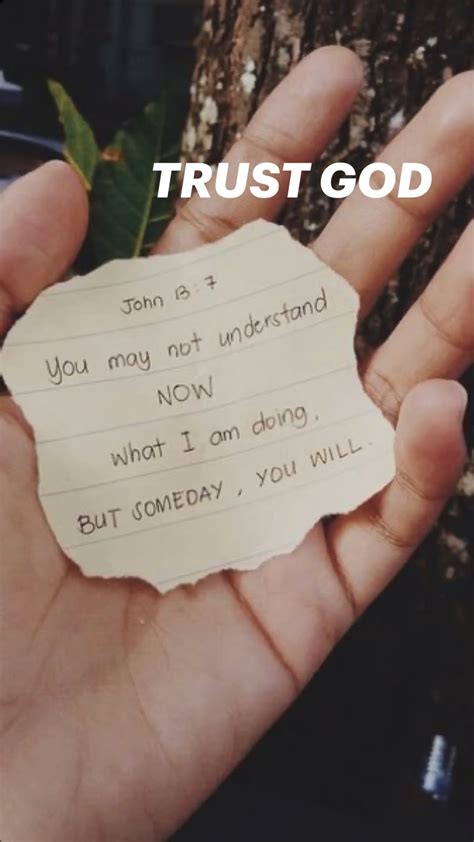 TRUST GOD
John 13:7
You may not understand
NOW
what I am doing.
BUT SOMEDAY, YOU WILL.